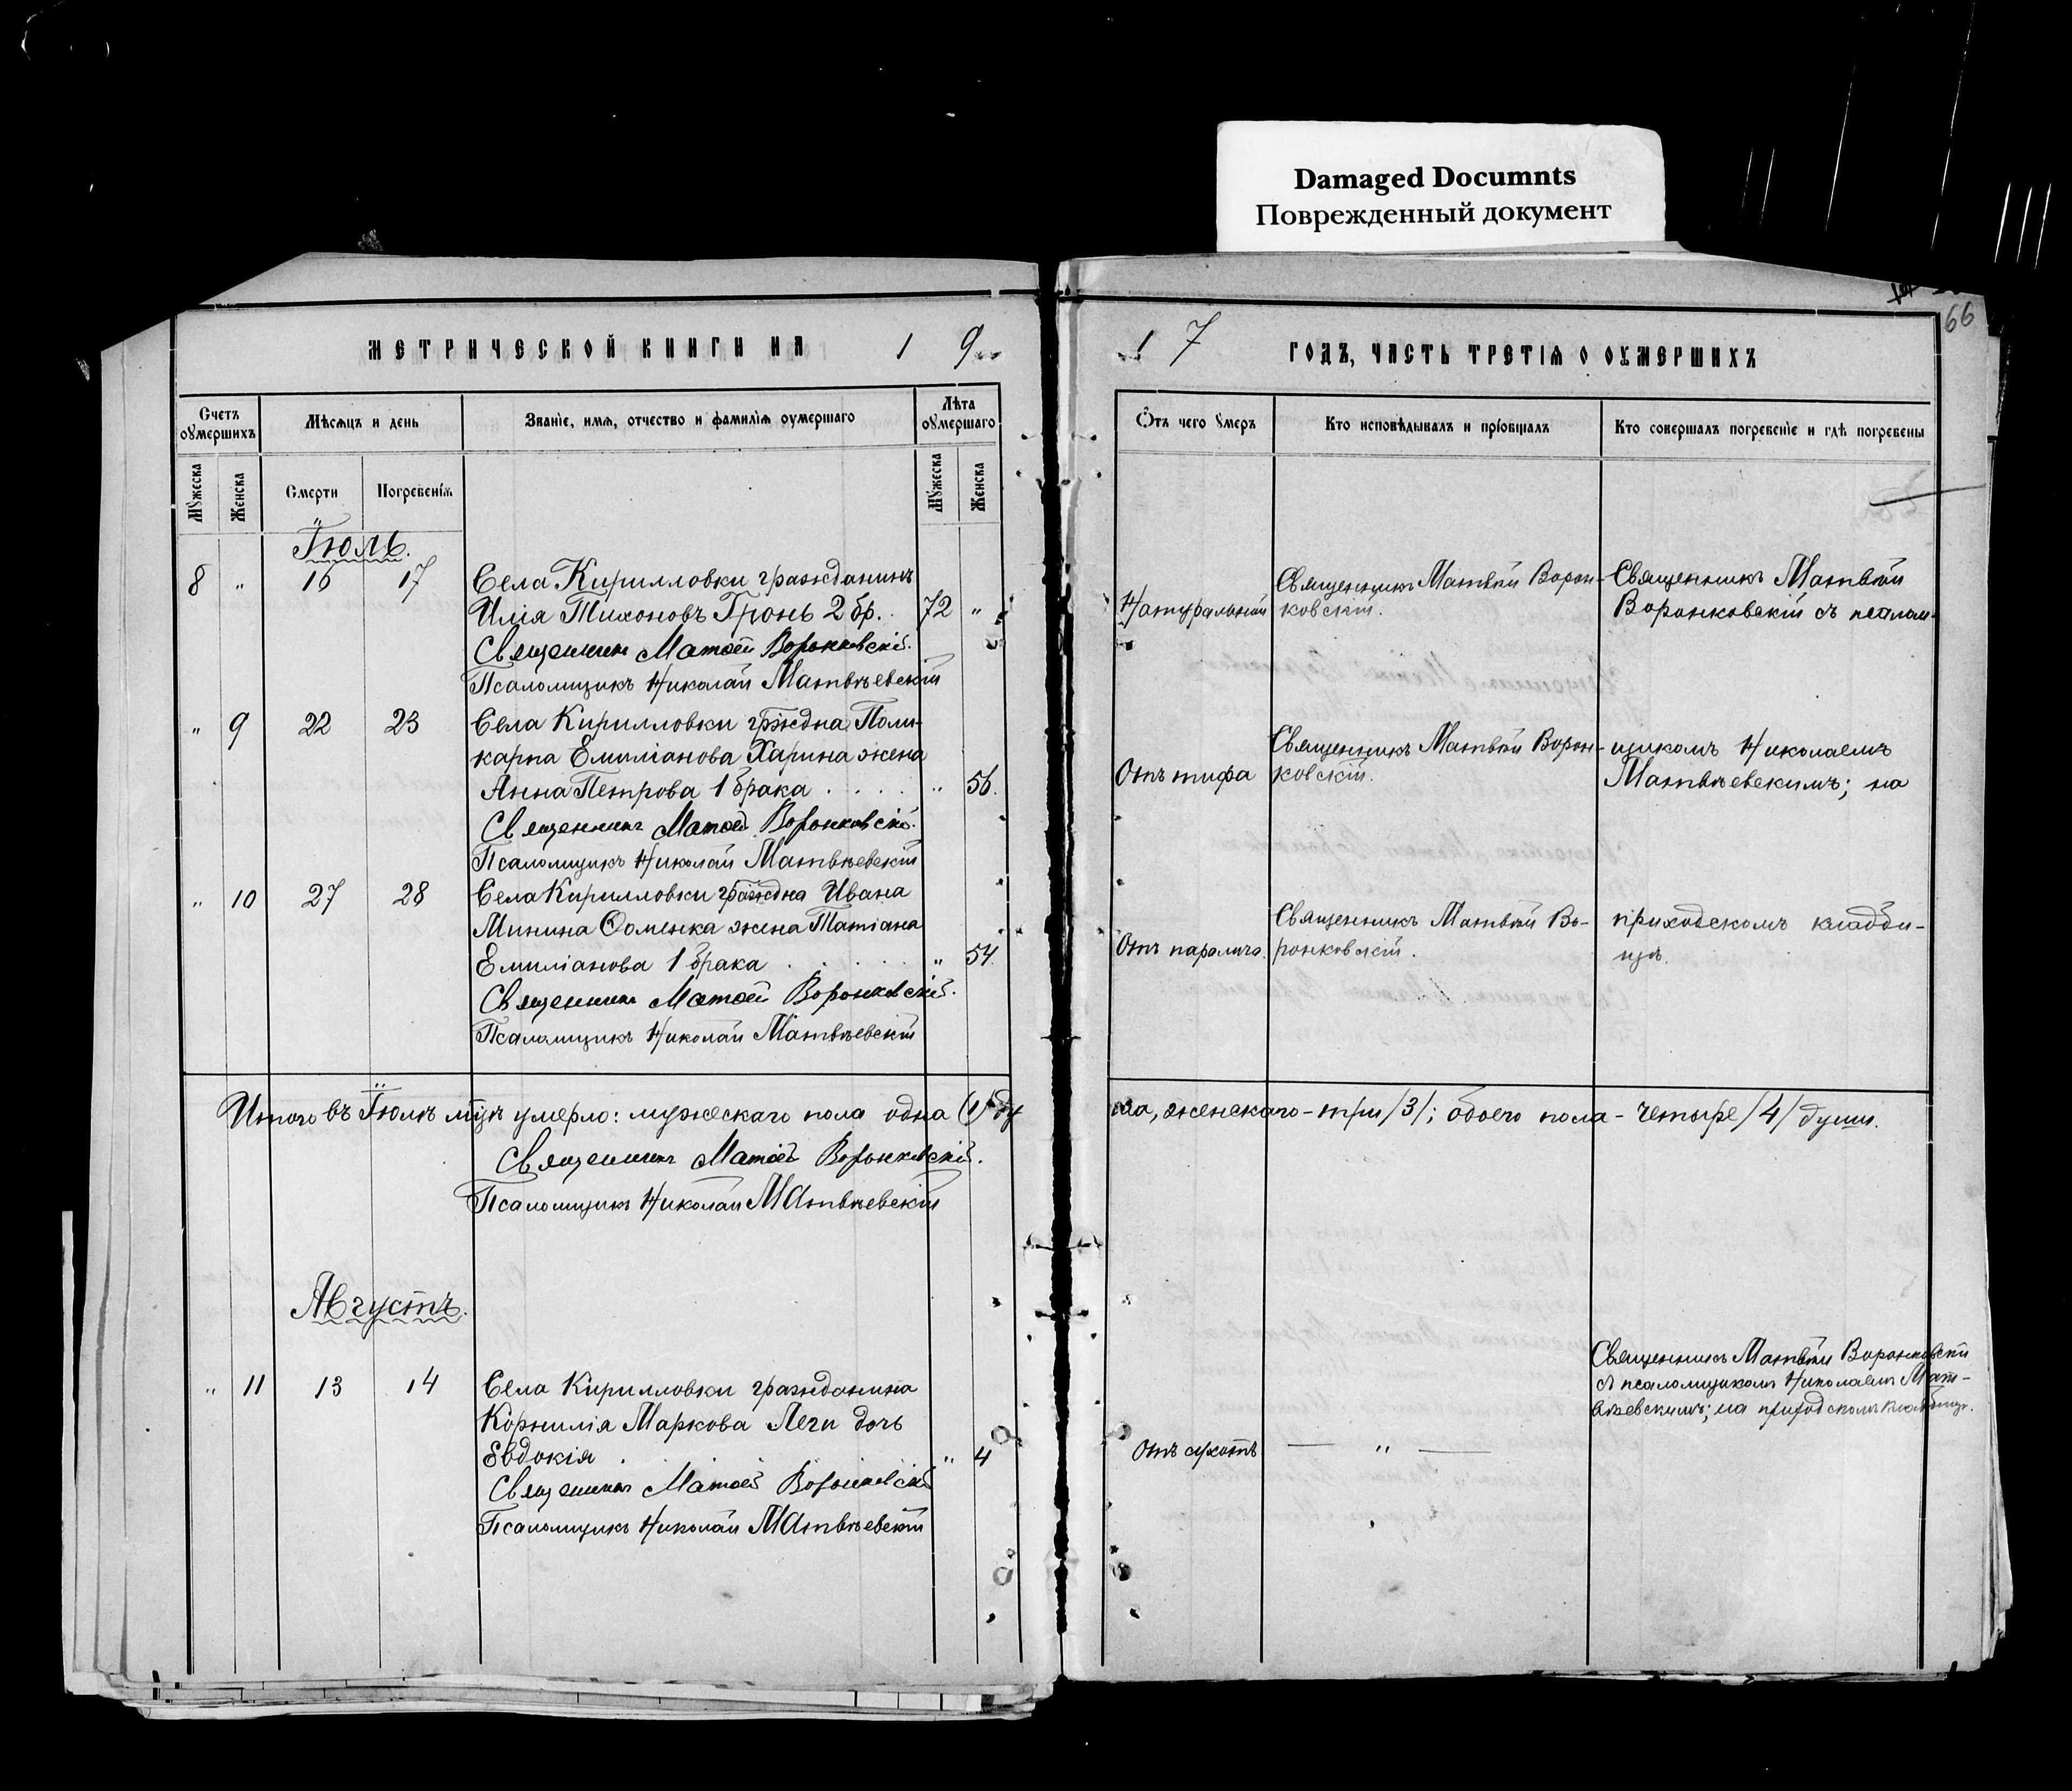 Damaged Documnts
Поврежденный документ
66
МЕТРИЧЕСКОЙ КНИГИ НА 19
17 ГОДЪ, ЧАСТЬ ТРЕТІѦ О ОУМЕРШИХЪ
Счетъ оумершихъ
Мѣсѧцъ и день
Званіе, имѧ, отчество и фамиліѧ оумершаго
Лѣта оумершаго
Ѿтъ чего ᲂумеръ
Кто исповѣдывалъ и пріобщалъ
Кто совершалъ погребеніе и гдѣ погребены
Мꙋжеска
Женска
Смерти
Погребеніѧ
Мꙋжеска
Женска
Іюль.
8 " 16 17 Села Кирилловки гражданинъ
Илія Тихоновъ Гронь 2 бр. 72 "
Священникъ Матѳей Воронковскій.
Псаломщикъ Николай Матвѣевскій
Натуральной
Священникъ Матвѣй Ворон-
ковскій.
Священникъ Матвѣй
Воронковскій съ псалом-
" 9 22 23 Села Кирилловки гражднa Поли-
карпа Емиліанова Харина жена
Анна Петрова 1 брака . . . . " 56.
Священникъ Матѳей Воронковскій.
Псаломщикъ Николай Матвѣевскій
Отъ тифа
Священникъ Матвѣй Ворон-
ковскій.
щикомъ Николаемъ
Матвѣевскимъ; на
" 10 27 28 Села Кирилловки гражднa Ивана
Минина Ѳоменка жена Татіана
Емиліанова 1 брака . . . . " 54.
Священникъ Матѳей Воронковскій.
Псаломщикъ Николай Матвѣевскій
Отъ паралича.
Священникъ Матвѣй Во-
ронковскій.
приходскомъ кладби-
щѣ.
Итого въ Іюлѣ мцѣ умерло: мужескаго пола одна (1) ду
ша, женскаго - три /3/; обоего пола - четыре /4/ души.
Священникъ Матѳей Воронковскій.
Псаломщикъ Николай Матвѣевскій
Августъ.
" 11 13 14 Села Кирилловки гражданина
Корнилія Маркова Леги дочь
Евдокія . . . . " 4
Священникъ Матѳей Воронковскій
Псаломщикъ Николай Матвѣевскій
Отъ сухотъ — " —
Священникъ Матвѣй Воронковскій
съ псаломщикомъ Николаемъ Мат-
вѣевскимъ; на приходскомъ кладбищѣ.